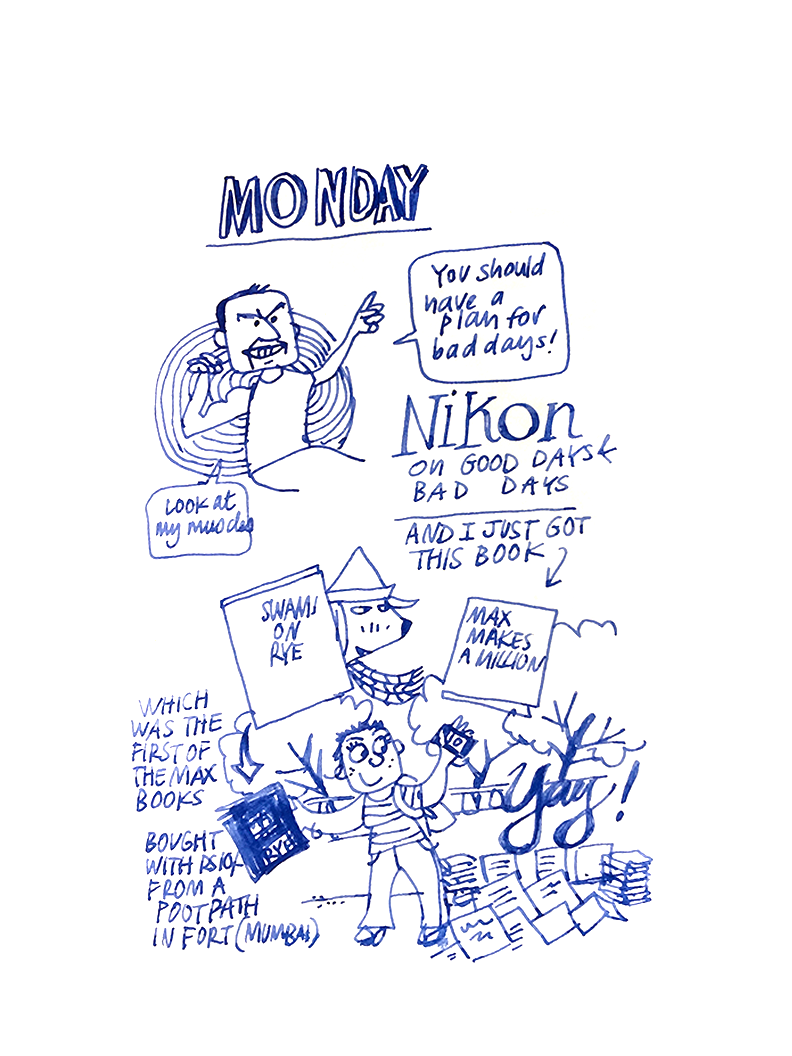 MONDAY
You should
have a
plan for
bad days!
Nikon
ON GOOD DAYS &
BAD DAYS
Look at
my muscles
AND I JUST GOT
THIS BOOK
SWAMI
ON
RYE
MAX
MAKES
A MILLION
WHICH
WAS THE
FIRST OF
THE MAX
BOOKS
10
Yay!
RYE
BOUGHT
WITH RS10/-
FROM A
FOOTPATH
IN FORT (MUMBAI)